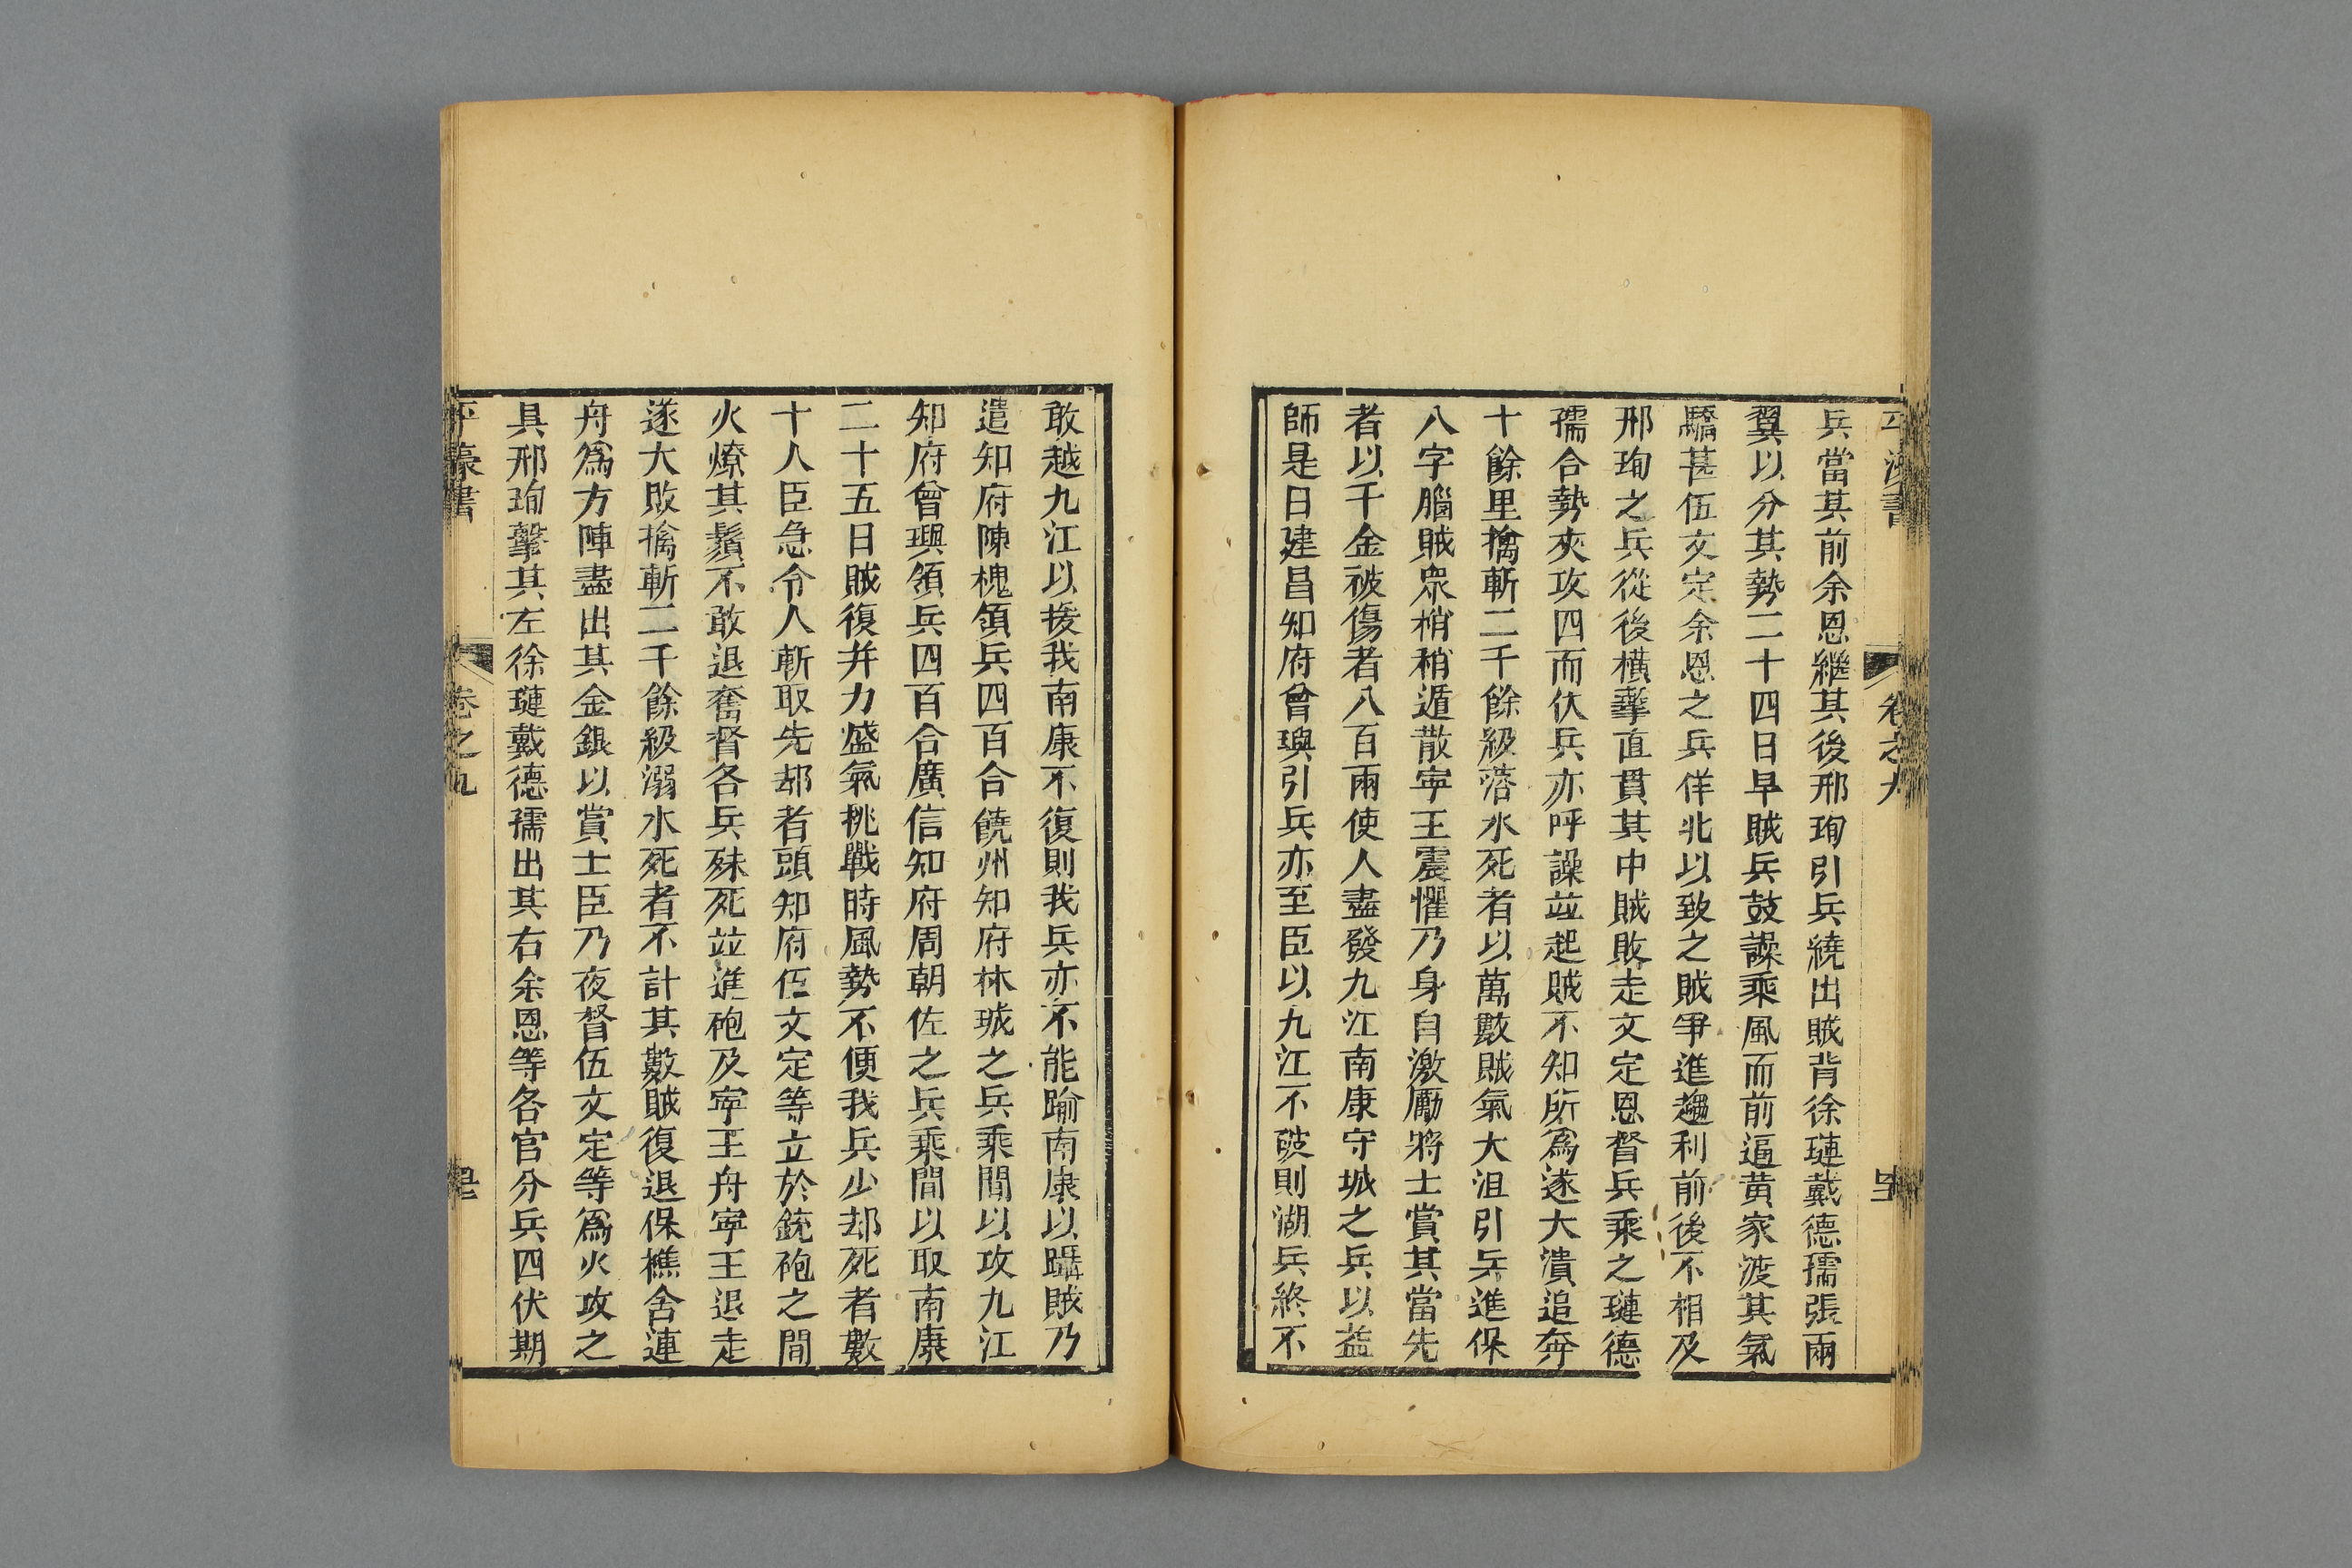 平濠書 卷之九
兵當其前余恩繼其後邢珣引兵繞出賊背徐璉戴德孺張兩
翼以分其勢二十四日早賊兵鼓譟乘風而前逼黃家渡其氣
驕甚伍文定余恩之兵佯北以致之賊爭進趨利前後不相及
邢珣之兵從後橫擊直貫其中賊敗走文定恩督兵乘之璉德
孺合勢夾攻四面伏兵亦呼譟竝起賊不知所爲遂大潰追奔
十餘里擒斬二千餘級落水死者以萬數賊氣大沮引兵進保
八字腦賊眾稍稍遁散寧王震懼乃身自激厲將士賞其當先
者以千金被傷者八百兩使人盡發九江南康守城之兵以益
師是日建昌知府曾璵引兵亦至臣以九江不破則湖兵終不
敢越九江以援我南康不復則我兵亦不能踰南康以躡賊乃
遣知府陳槐領兵四百合饒州知府林珹之兵乘間以攻九江
知府曾璵領兵四百合廣信知府周朝佐之兵乘間以取南康
二十五日賊復并力盛氣挑戰時風勢不便我兵少却死者數
十人臣急令人斬取先却者頭知府伍文定等立於銃砲之間
火燎其鬚不敢退奮督各兵殊死竝進砲及寧王舟寧王退走
遂大敗擒斬二千餘級溺水死者不計其數賊復退保樵舍連
舟爲方陣盡出其金銀以賞士臣乃夜督伍文定等爲火攻之
具邢珣擊其左徐璉戴德孺出其右余恩等各官分兵四伏期
平濠書 卷之九